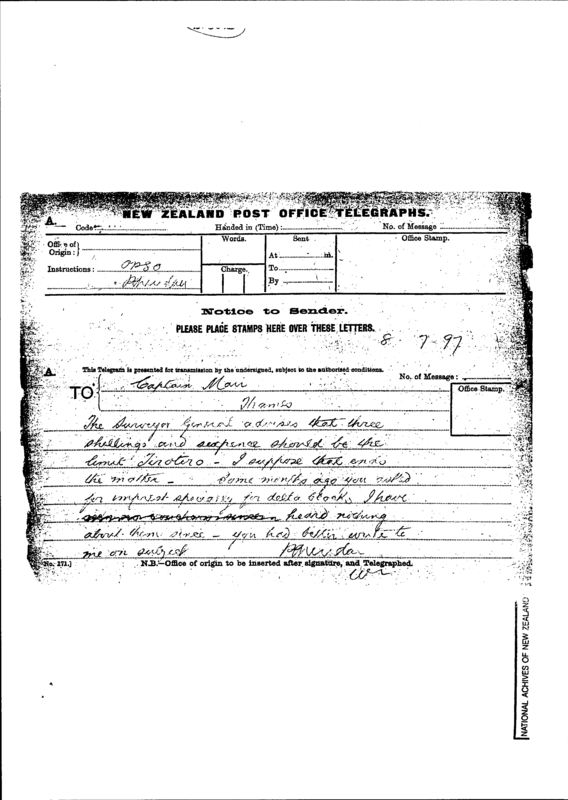 NEW ZEALAND POST OFFICE TELEGRAPHS.
A.
Code
Handed in (Time) :
No. of Message
Office of Origin :
Words.
Sent
Office Stamp.
At m.
Instructions : OPSO
Charge.
To
P Sheridan
By
Notice to Sender.
PLEASE PLACE STAMPS HERE OVER THESE LETTERS.
8 - 7 - 97
A.
This Telegram is presented for transmission by the undersigned, subject to the authorized conditions.
No. of Message :
TO
Captain Mair
Office Stamp.
Thames
The Surveyor General advises that three
shillings and sixpence should be the
limit - I suppose that ends
the matter - Some months ago you
for imprest specially for delta blocks I have
heard nothing
about them since - you had better write to
me on subject
P Sheridan
No. 171.]
N.B.—Office of origin to be inserted after signature, and Telegraphed.
NATIONAL ACHIVES OF NEW ZEALAND